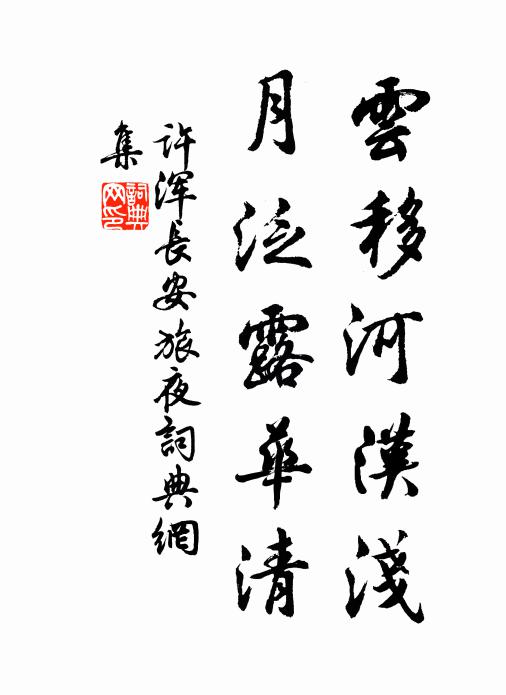 雲移河漢淺
月泛露華清
许浑長安旅夜詞典網
集
詞典
网印